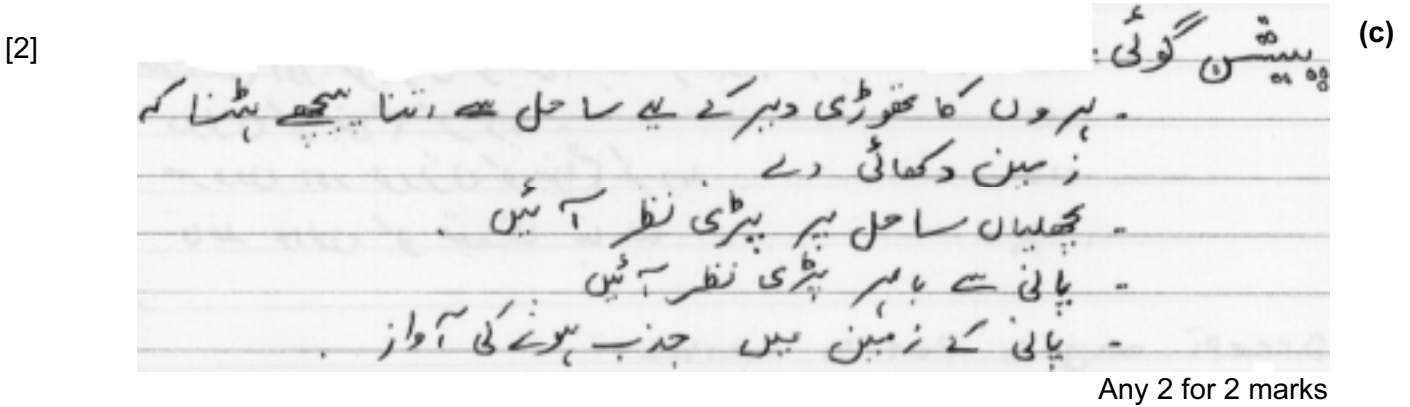 (c) پیشن گوئی: [2]
- لہروں کا تھوڑی دیر کے لیے ساحل سے اتنا پیچھے ہٹنا کہ
زمین دکھائی دے
- مچھلیاں ساحل پر پڑی نظر آئیں.
- پانی سے باہر پڑی نظر آئیں
- پانی کے زمین میں جذب ہونے کی آواز.
Any 2 for 2 marks